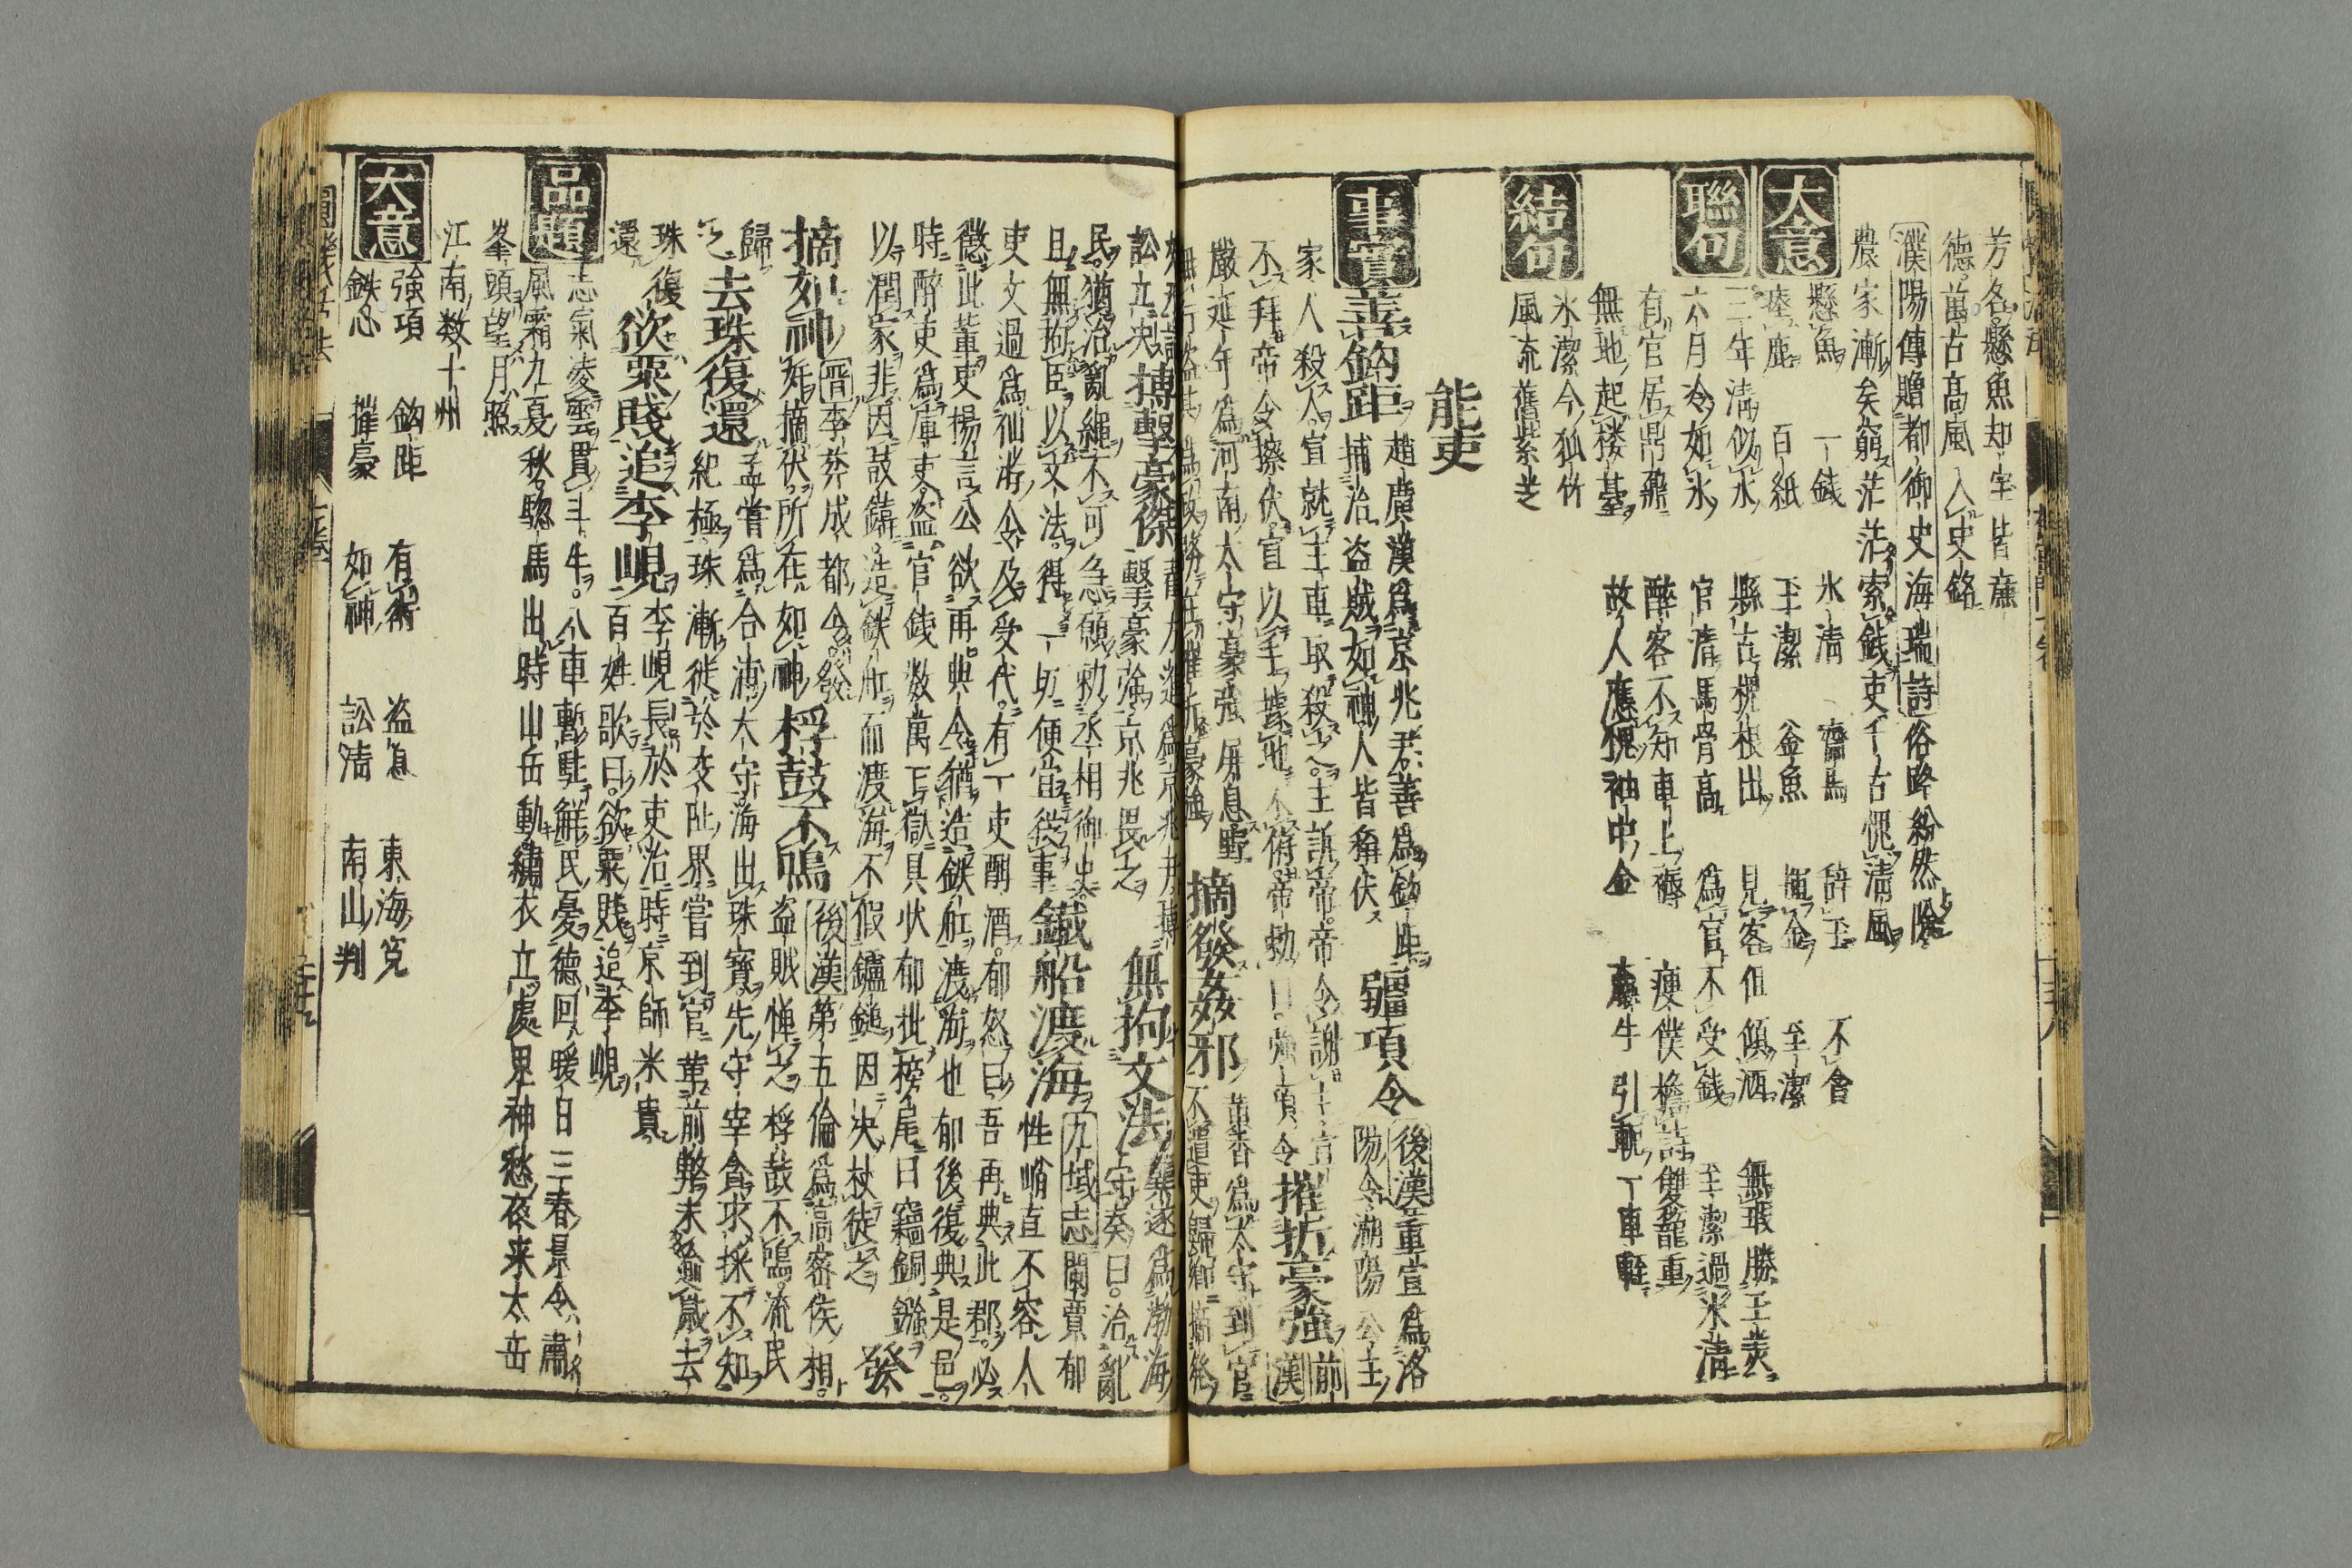 芳名懸魚却宰皆廉
德萬古高風入史銘
濮陽傳贈都御史海瑞詩俗降紛然陰
農家漸矣窮茫茫索錢吏千古愧清風
大意
懸魚 一錢 氷清 齋馬 辞玉 不貪
瘞鹿 百紙 玉潔 釜魚 甑金 至潔
聯句
三年清似水 縣古槐根出 見客但傾酒 無瑕勝玉美
六月冷如氷 官清馬骨高 為官不受錢 至潔過氷清
有官居鼎鼐 醉客不知車上褥 瘦僕擔詩雙龍重
無地起楼臺 故人應愧袖中金 牛引一車輕
結句
氷潔今孤竹
風流舊紫芝
能吏
事實
善鈎距 趙廣漢為京兆君善為鈎距 疆項令 後漢董宣為洛
捕治盗賊如神人皆稱伏 陽令湖陽公主
家人殺人宣就主車取殺之主訴帝帝令謝主宣
不拜帝令擦伏宣以手據地不俯帝勅曰強項令 摧折豪強 前漢
嚴延年為河南太守豪強屏息 摘發姦邪 黄香為太守到官
不遣吏歸鄉摘発
訟立决 搏擊豪傑 擊豪強京兆畏之 無拘文法 龔遂為渤海
民猶治亂繩不可急願勅丞相御史 守奏曰治亂
且無拘臣以文法得一切便宜從事 鐵船渡海 九域志閬賈郁
性峭直不容人
吏文過為仙游令及受代有一吏酗酒郁怒曰吾再典此郡必
懲此輩吏揚言公欲再典令猶造鉄舡渡海也郁後復典是邑
時醉吏為庫吏盗官錢数萬下獄具状郁批榜尾曰竊銅鏹
以潤家非因鼓鑄造鉄舡而渡海不假鑪鎚因决杖徒之 發
摘如神 晋李莽成都令發 桴鼓不鳴 後漢第五倫為高密侯相
姦摘伏所在如神 盗賊憚之桴鼓不鳴流民
歸之 去珠復還 孟嘗為合浦大守海出珠寳先守宰貪求採不知
紀極珠漸徙於交趾界嘗到官革前弊未踰歳去
珠復還 欲粟賤追李峴 李峴長於吏治時京師米貴
百姓歌曰欲粟賤追李峴
品題
志氣凌雲貫斗牛八車暫駐解民憂德回暖日三春景令肅
風霜九夏秋驄馬出時山岳動繡衣立處界神愁夜来太岳
峯頭望月照
江南数十州
大意
強項 鈎距 有術 盗息 東海寃
鉄心 摧豪 如神 訟清 南山判